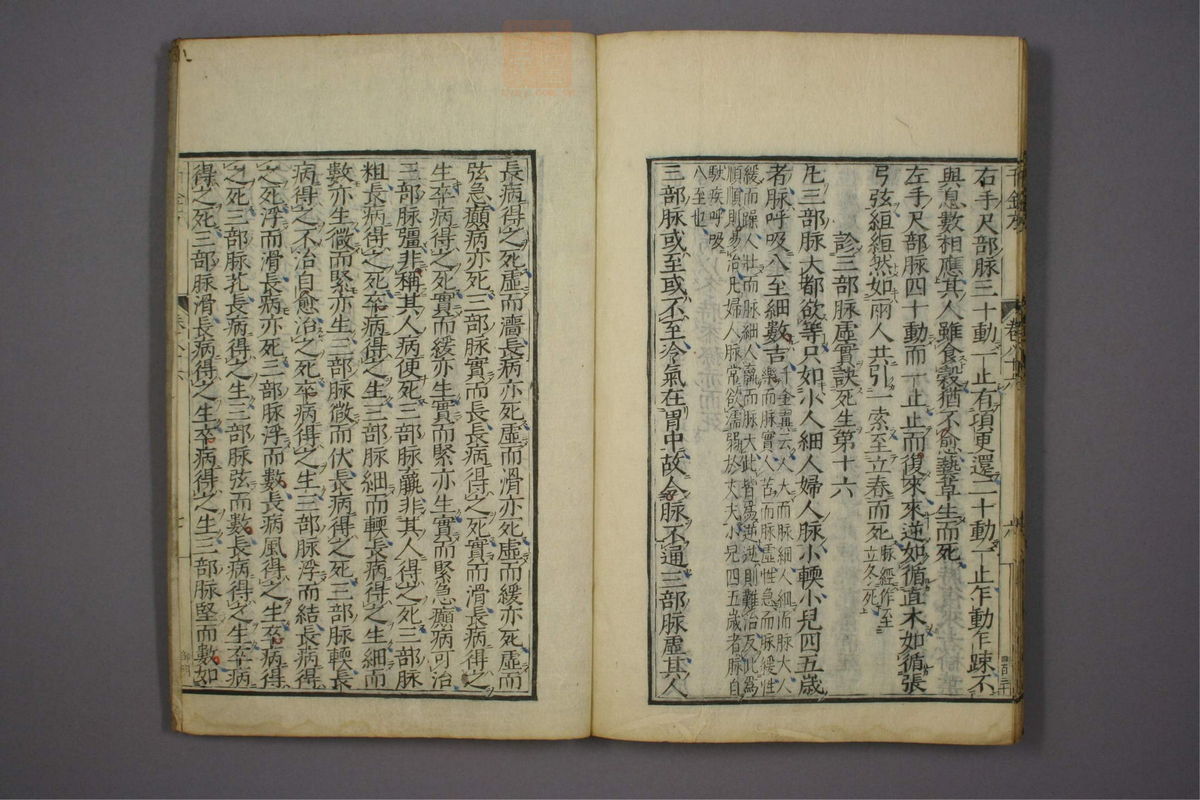 右手尺部脉三十動一止有頃更還二十動一止乍動乍踈不
與息數相應其人雖食穀猶不愈蘩草生而死
左手尺部脉四十動而一止止而復來來逆如循直木如循張
弓弦絙絙然如兩人共引一索至立春而死脉經作至立冬死
診三部脉虛實訣死生第十六
凡三部脉大都欲等只如小人細人婦人脉小軟小兒四五歲
者脉呼吸八至細數吉千金翼云人大而脉細人細而脉大人
樂而脉實人苦而脉虛性急而脉緩性
緩而躁人壯而脉細人羸而脉大此皆爲逆逆則難治反此爲
順順則易治凡婦人脉常欲濡弱於丈夫小兒四五歲者脉自
駃疾呼吸
八至也
三部脉或至或不至冷氣在胃中故令脉不通三部脉虛其人
長病得之死虛而濇長病亦死虛而滑亦死虛而緩亦死虛而
弦急癲病亦死三部脉實而長長病得之死實而滑長病得之
生卒病得之死實而緩亦生實而緊亦生實而緊急癲病可治
三部脉彊非稱其人病便死三部脉羸非其人得之死三部脉
粗長病得之死卒病得之生三部脉細而軟長病得之生細而
數亦生微而緊亦生三部脉微而伏長病得之死三部脉軟長
病得之不治自愈治之死卒病得之生三部脉浮而結長病得
之死浮而滑長病亦死三部脉浮而數長病風得之生卒病得
之死三部脉芤長病得之生三部脉弦而數長病得之生卒病
得之死三部脉滑長病得之生卒病得之生三部脉堅而數如